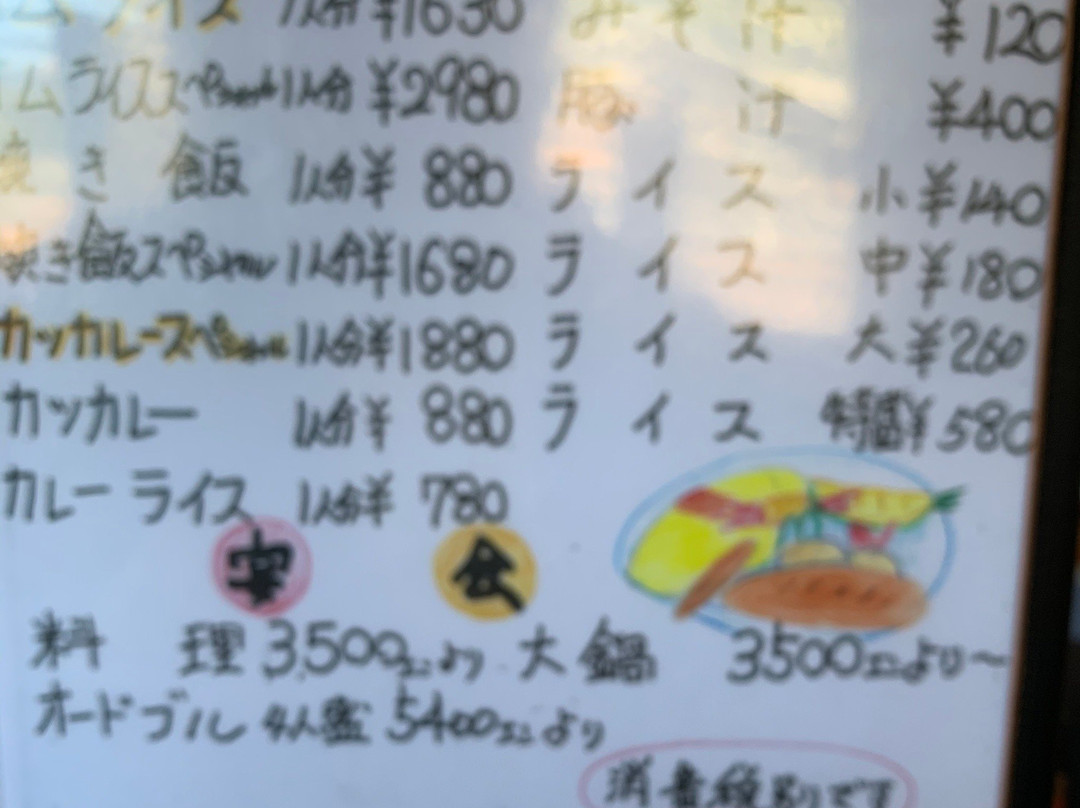 ムライス 1人分 ¥1630 みそ汁 ¥120
ムライススペシャル 1人分 ¥2980 豚汁 ¥400
焼き飯 1人分 ¥880 ライス 小 ¥140
焼き飯スペシャル 1人分 ¥1680 ライス 中 ¥180
カツカレースペシャル 1人分 ¥1880 ライス 大 ¥260
カツカレー 1人分 ¥880 ライス 特盛 ¥580
カレーライス 1人分 ¥780
宴 会
料理 3,500円より 大鍋 3500円より〜
オードブル 4人盛 5400円より
消費税別です